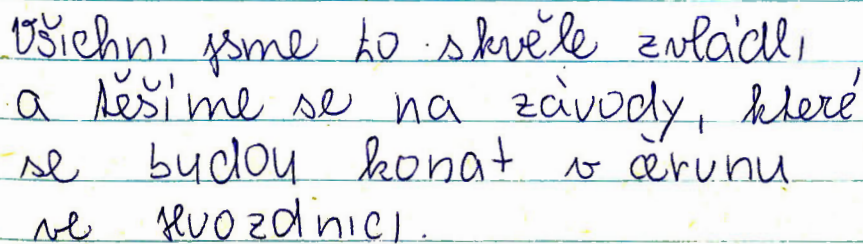 Všichni jsme to skvěle zvládli
a těšíme se na závody, které
se budou konat v červnu
ve Hvozdnici.